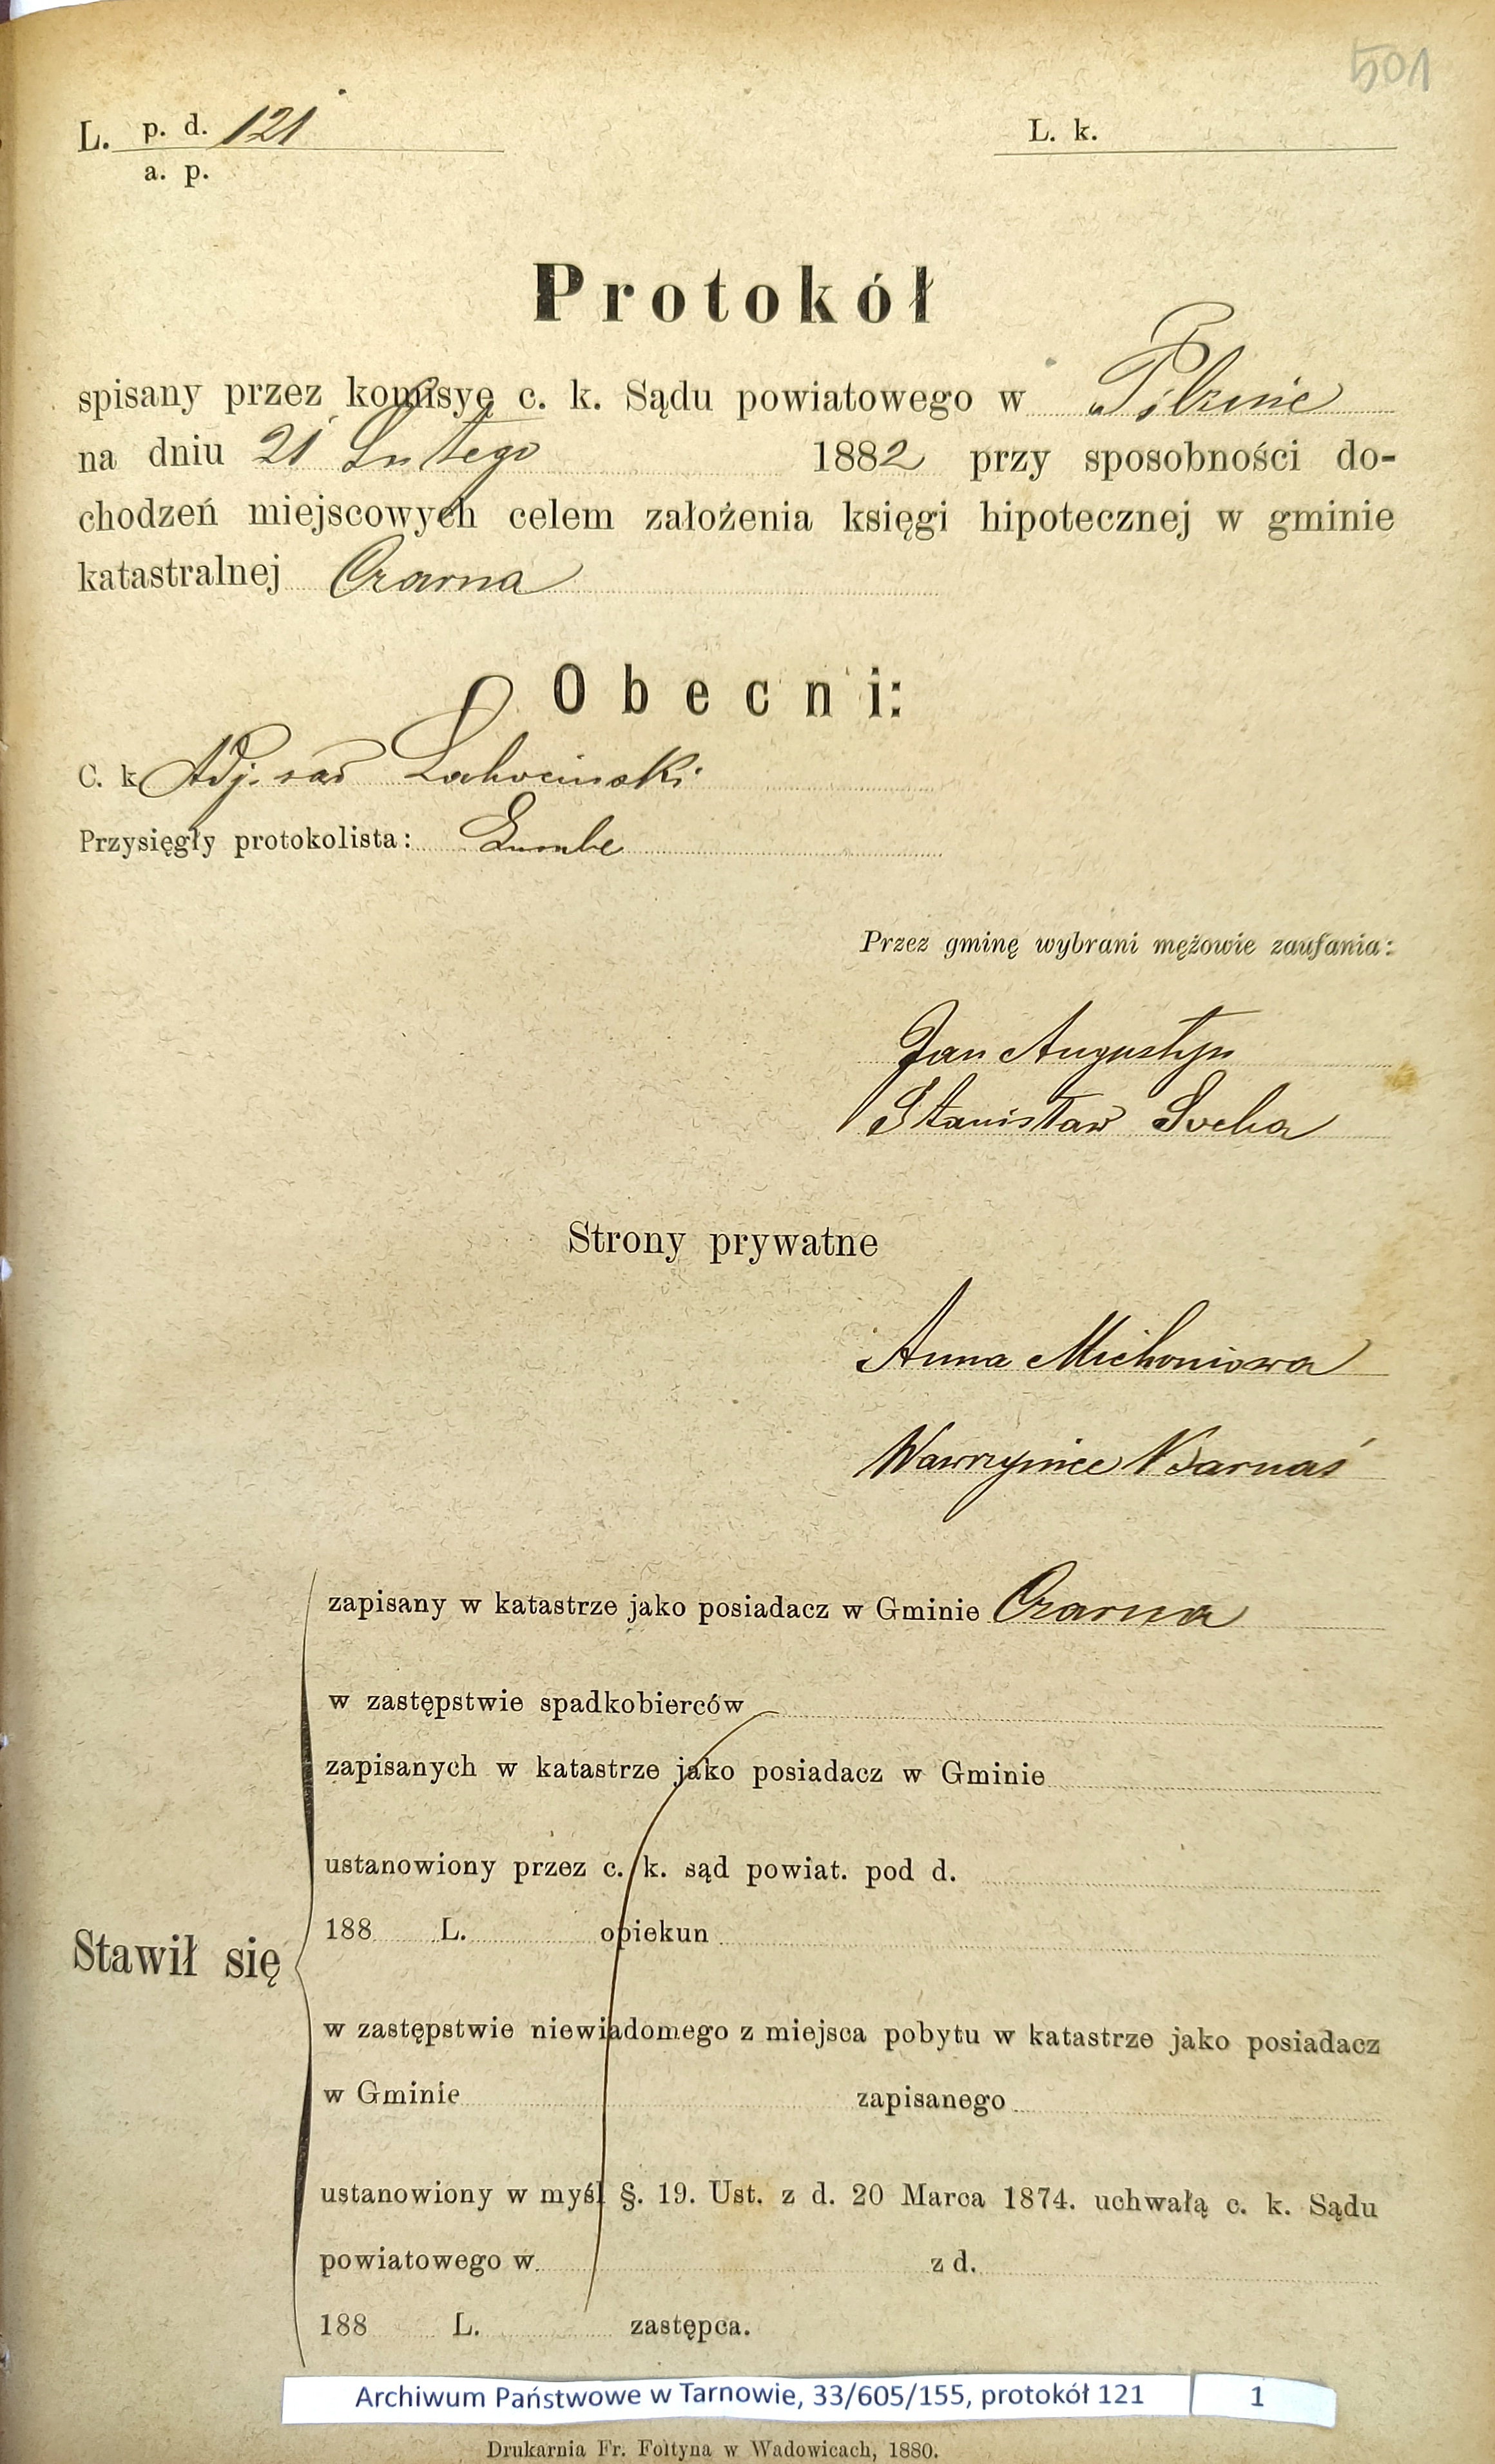 501
L. p. d. 121
a. p.
L. k.
Protokół
spisany przez komisyę c. k. Sądu powiatowego w Pilznie
na dniu 21 Lutego 1882 przy sposobności do-
chodzeń miejscowych celem założenia księgi hipotecznej w gminie
katastralnej Czarna
Obecni:
C. k. Adj. sąd
Przysięgły protokolista:
Przez gminę wybrani mężowie zaufania:
Jan Augustyn
Stanisław Socha
Strony prywatne
Anna Michoniowa
Wawrzyniec Barnaś
Stawił się
zapisany w katastrze jako posiadacz w Gminie Czarna
w zastępstwie spadkobierców
zapisanych w katastrze jako posiadacz w Gminie
ustanowiony przez c. k. sąd powiat. pod d.
188 L. opiekun
w zastępstwie niewiadomego z miejsca pobytu w katastrze jako posiadacz
w Gminie zapisanego
ustanowiony w myśl §. 19. Ust. z d. 20 Marca 1874. uchwałą c. k. Sądu
powiatowego w z d.
188 L. zastępca.
Archiwum Państwowe w Tarnowie, 33/605/155, protokół 121 1
Drukarnia Fr. Foltyna w Wadowicach, 1880.